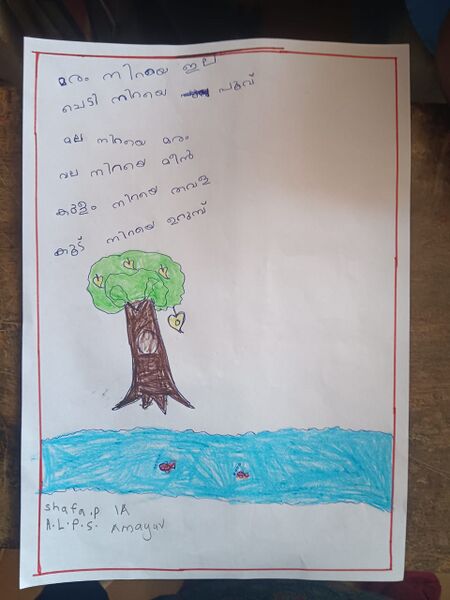 മരം നിറയെ ഇല
ചെടി നിറയെ പൂവ്
മല നിറയെ മരം
വല നിറയെ മീൻ
കുളം നിറയെ തവള
കൂട് നിറയെ ഉറുമ്പ്
shafa.p 1A
A.L.P.S. Amayur